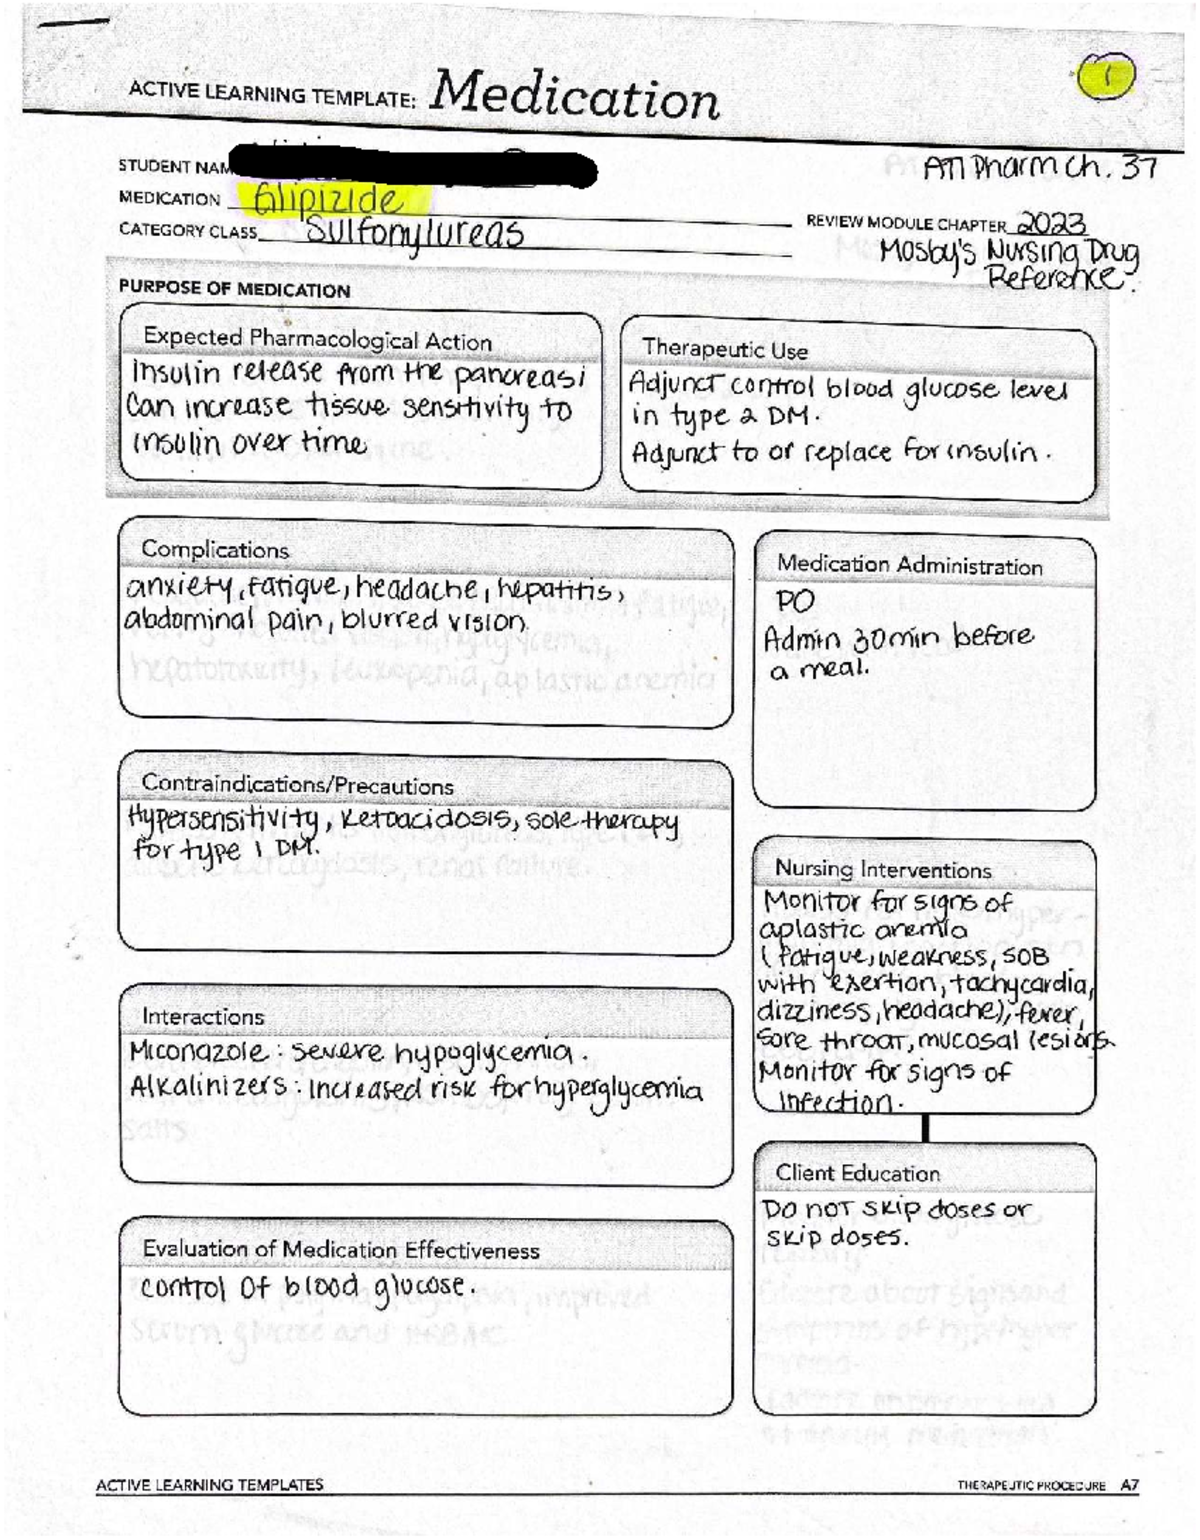 ACTIVE LEARNING TEMPLATE: Medication
1
STUDENT NAM
ATI Pharm Ch. 37
MEDICATION Glipizide
REVIEW MODULE CHAPTER 2023
CATEGORY CLASS Sulfonylureas
Mosby's Nursing Drug
Reference.
PURPOSE OF MEDICATION
Expected Pharmacological Action
Insulin release from the pancreas;
Can increase tissue sensitivity to
insulin over time
Therapeutic Use
Adjunct control blood glucose level
in type 2 DM.
Adjunct to or replace for insulin.
Complications
anxiety, fatigue, headache, hepatitis,
abdominal pain, blurred vision.
Medication Administration
PO
Admin 30min before
a meal.
Contraindications/Precautions
Hypersensitivity, Ketoacidosis, sole therapy
for type 1 DM.
Nursing Interventions
Monitor for signs of
aplastic anemia
(fatigue, weakness, SOB
with exertion, tachycardia,
dizziness, headache), fever,
sore throat, mucosal lesions.
Monitor for signs of
infection.
Interactions
Miconazole: severe hypoglycemia.
Alkalinizers: Increased risk for hyperglycemia
Client Education
Do not skip doses or
skip doses.
Evaluation of Medication Effectiveness
control of blood glucose.
ACTIVE LEARNING TEMPLATES
THERAPEUTIC PROCEDURE A7